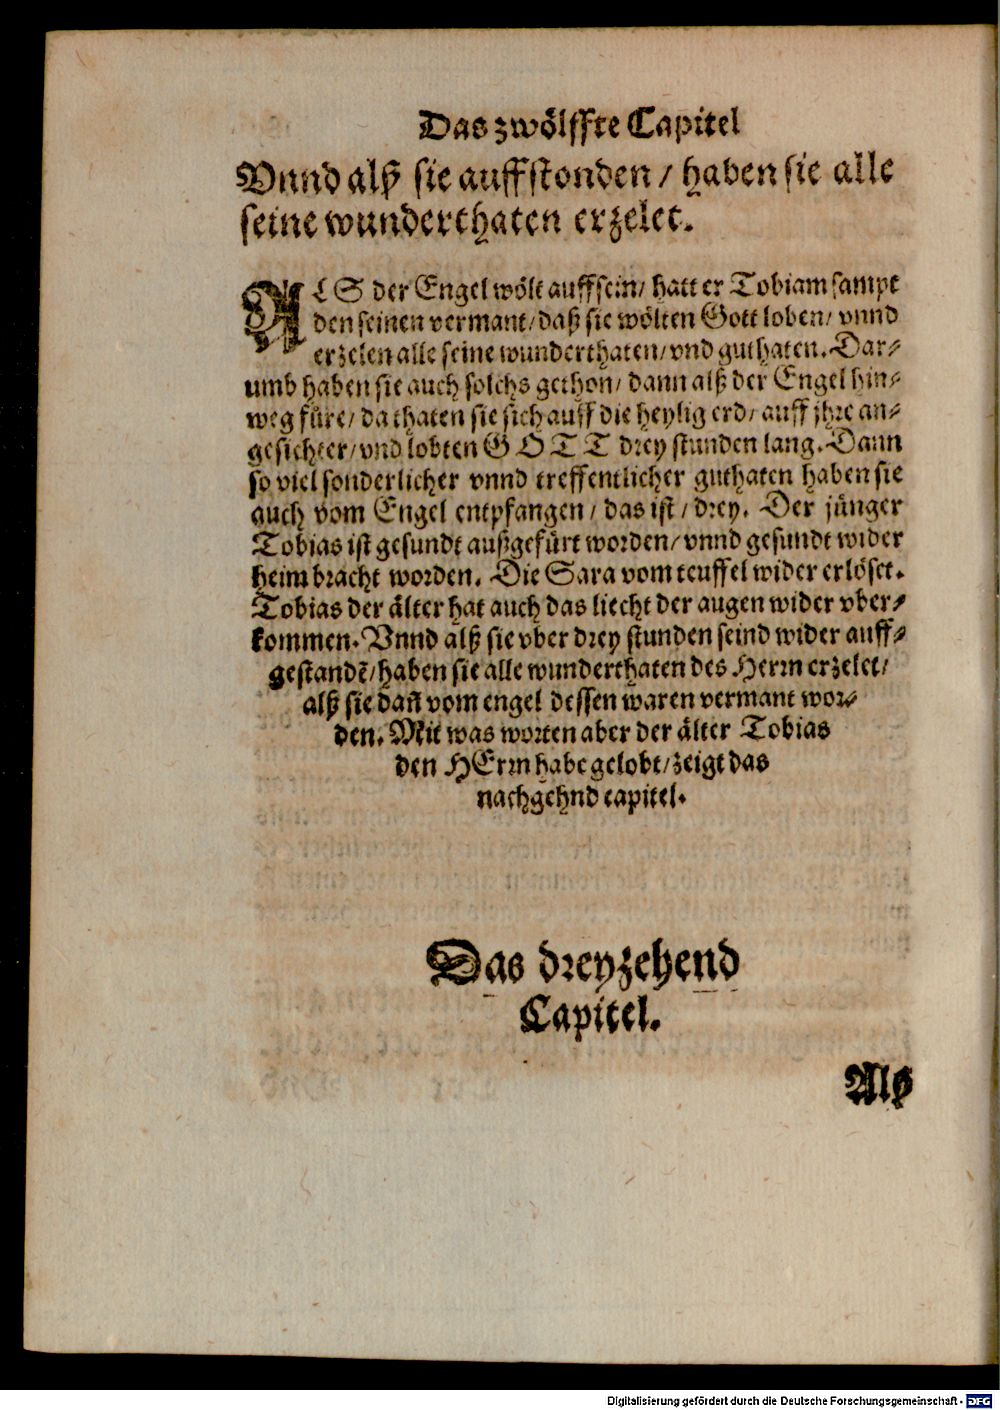 Das zwölffte Capitel
Vnnd alß sie auffstonden / haben sie alle
seine wunderthaten erzelet.
ALS der Engel wölt auffsein / hatt er Tobiam sampt
den seinen vermant / daß sie wölten Gott loben / vnnd
erzelen alle seine wunderthaten / vnd guthaten. Dar-
umb haben sie auch solchs gethon / dann alß der Engel hin-
weg füre / da thaten sie sich auff die heylig erd / auff jhre an-
gesichter / vnd lobten GOTT drey stunden lang. Dann
so viel sonderlicher vnnd treffentlicher guthaten haben sie
auch vom Engel entpfangen / das ist / drey. Der jünger
Tobias ist gesundt außgefürt worden / vnnd gesundt wider
heim bracht worden. Die Sara vom teuffel wider erlöset.
Tobias der älter hat auch das liecht der augen wider vber-
kommen. Vnnd alß sie vber drey stunden seind wider auff-
gestandē / haben sie alle wunderthaten des Herrn erzelet /
alß sie dañ vom engel dessen waren vermant wor-
den. Mit was worten aber der älter Tobias
den HErrn habe gelobt / zeigt das
nachgehnd capitel.
Das dreyzehend
Capitel.
Alß
Digitalisierung gefördert durch die Deutsche Forschungsgemeinschaft - DFG